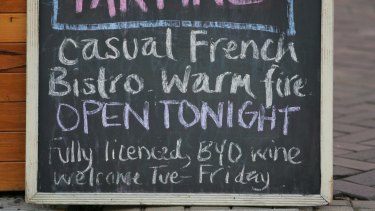 Casual French
Bistro Warm fire
OPEN TONIGHT
Fully licenced, BYO wine
welcome Tue-Friday